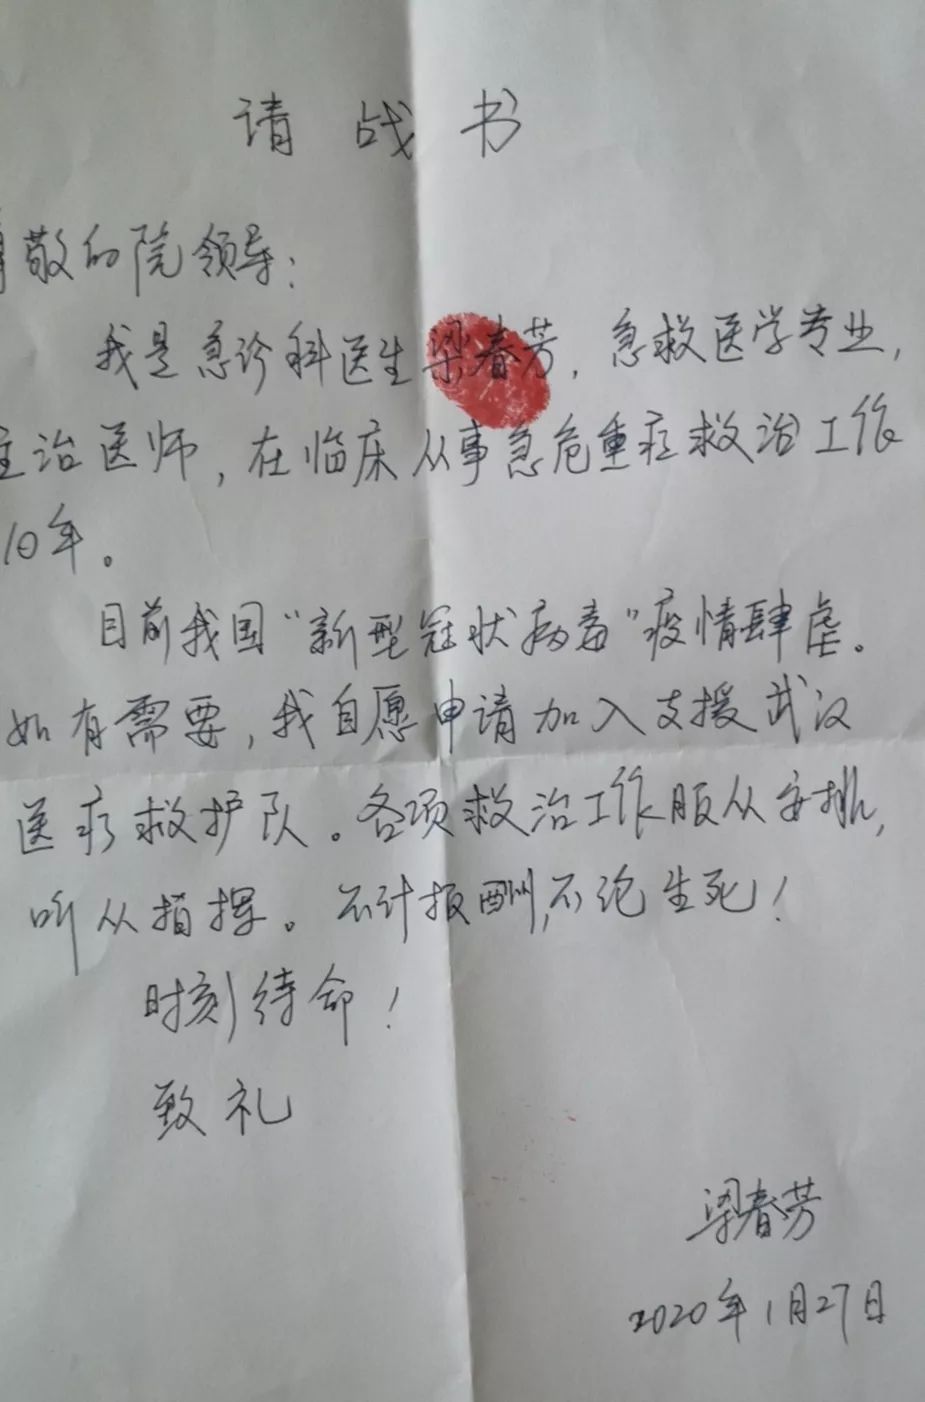 请战书
尊敬的院领导：
我是急诊科医生梁春芳，急救医学专业，
主治医师，在临床从事急危重症救治工作
10年。
目前我国“新型冠状病毒”疫情肆虐。
如有需要，我自愿申请加入支援武汉
医疗救护队。各项救治工作服从安排，
听从指挥。不计报酬，不论生死！
时刻待命！
致礼
梁春芳
2020年1月27日